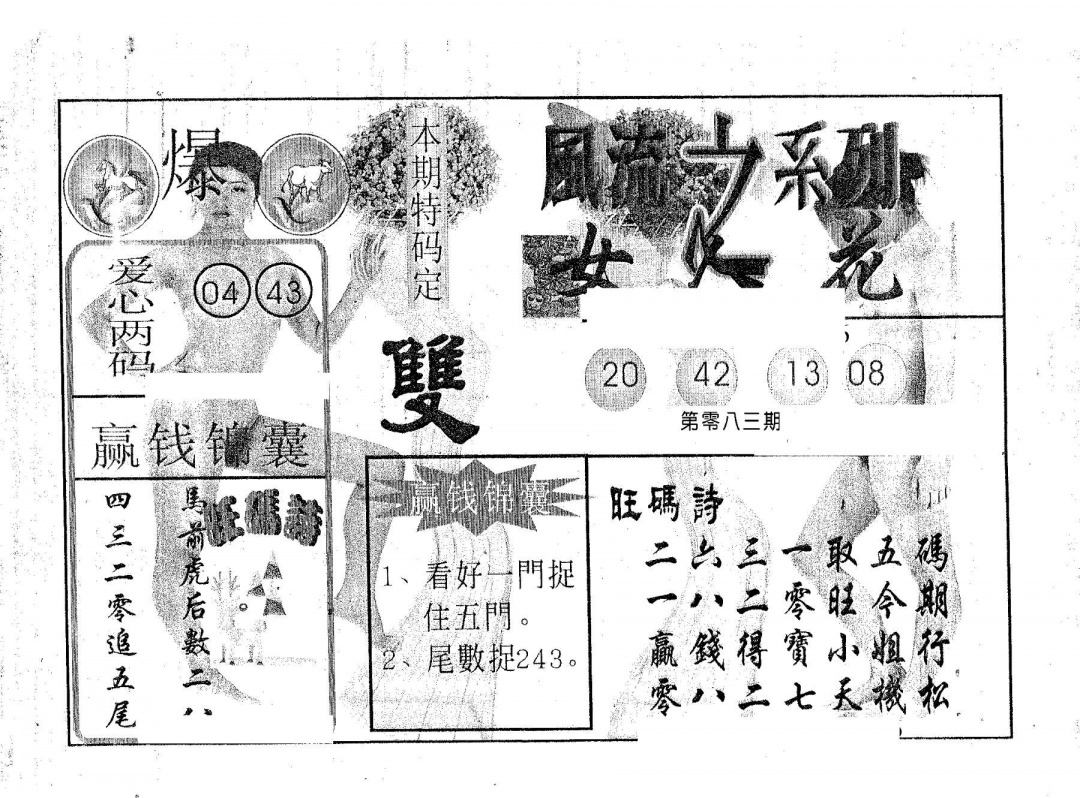 風流女人系列
女人花
爆
本期特码定
雙
爱心两码
04 43
20 42 13 08
第零八三期
赢钱锦囊
旺碼詩
馬前虎后數二八
四三二零追五尾
赢钱锦囊
1、看好一門捉
住五門。
2、尾數捉243。
旺碼詩
二六三一取五碼
一八二零旺今期
贏錢得寶小姐行
零八二七天機松